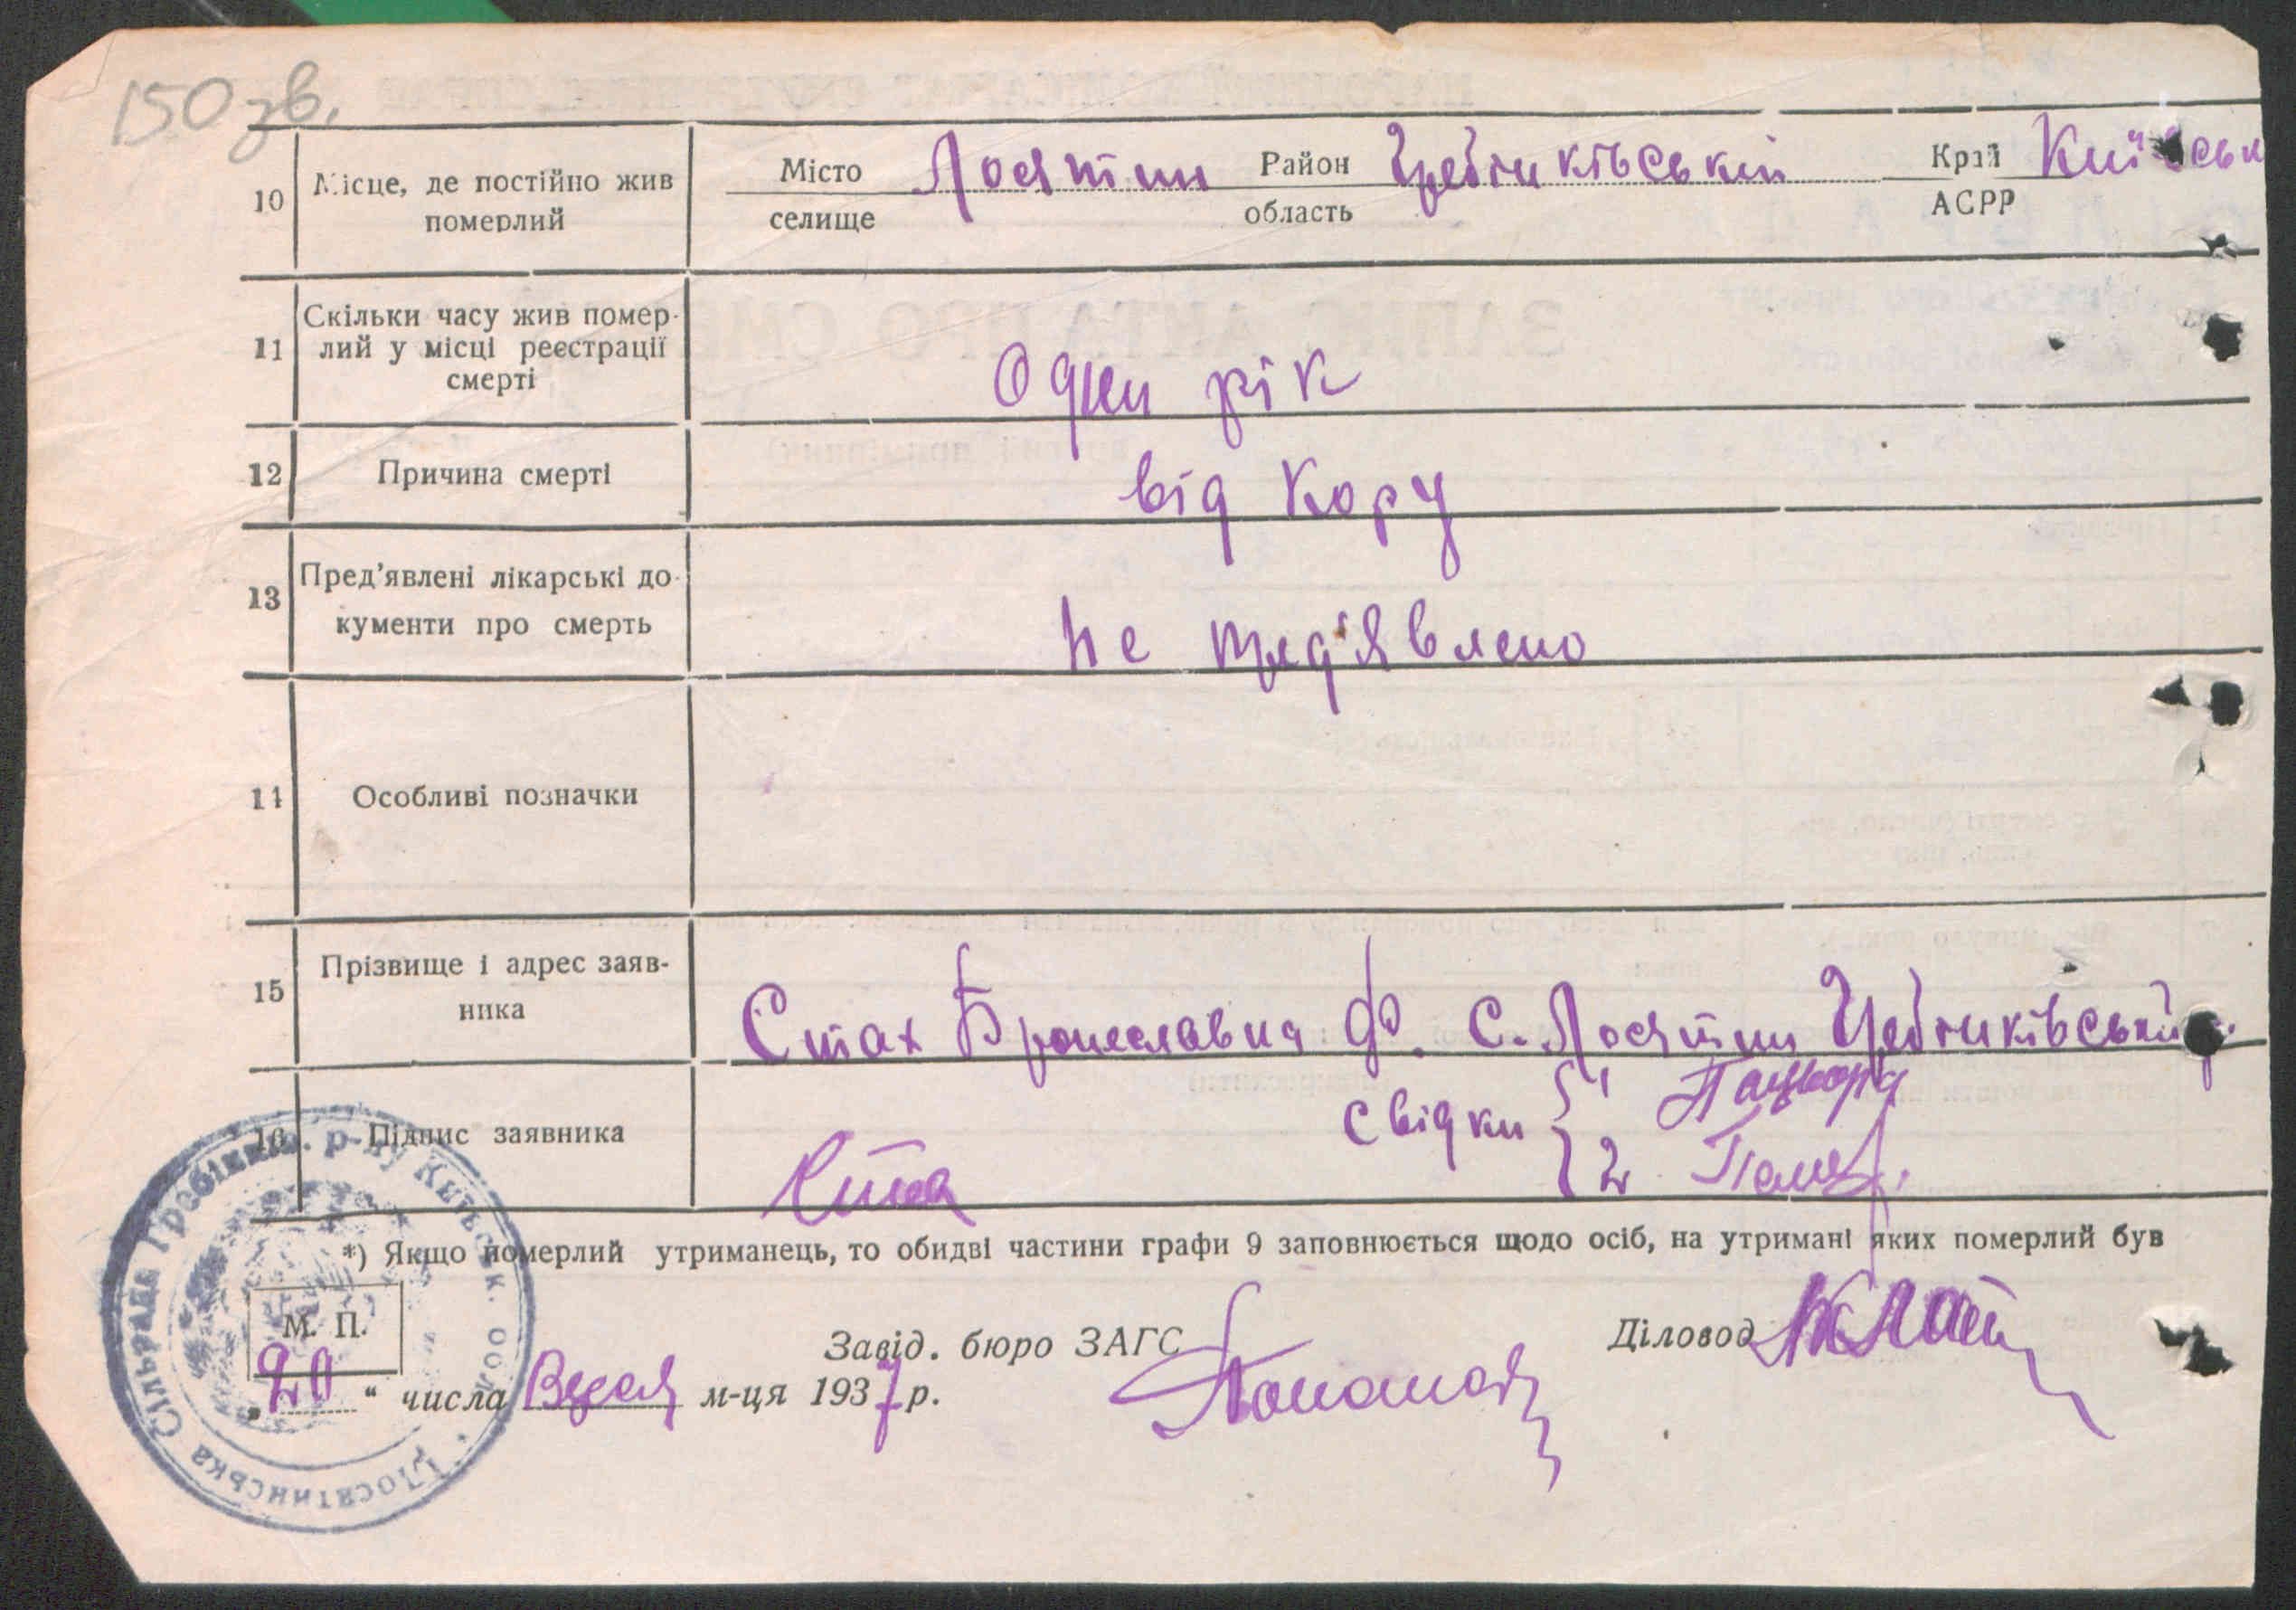 150 зв.
10 Місце, де постійно жив померлий
Місто Лосятин Район Гребінківський Край Київськ
селище область АСРР
11 Скільки часу жив помер-
лий у місці реєстрації
смерті
Один рік
12 Причина смерті від Кору
13 Пред'явлені лікарські до-
кументи про смерть
не пред'явлено
14 Особливі позначки
15 Прізвище і адрес заяв-
ника
Стах Броніславна Ф. С. Лосятин Гребінківський р.
16 Підпис заявника
свідки 1
2
*) Якщо померлий утриманець, то обидві частини графи 9 заповнюється щодо осіб, на утримані яких померлий був
М. П.
Завід. бюро ЗАГС
Діловод
„20“ числа м-ця 1937 р.
Лосятинська Сільрада Гребінків. р-ну Київськ. обл.